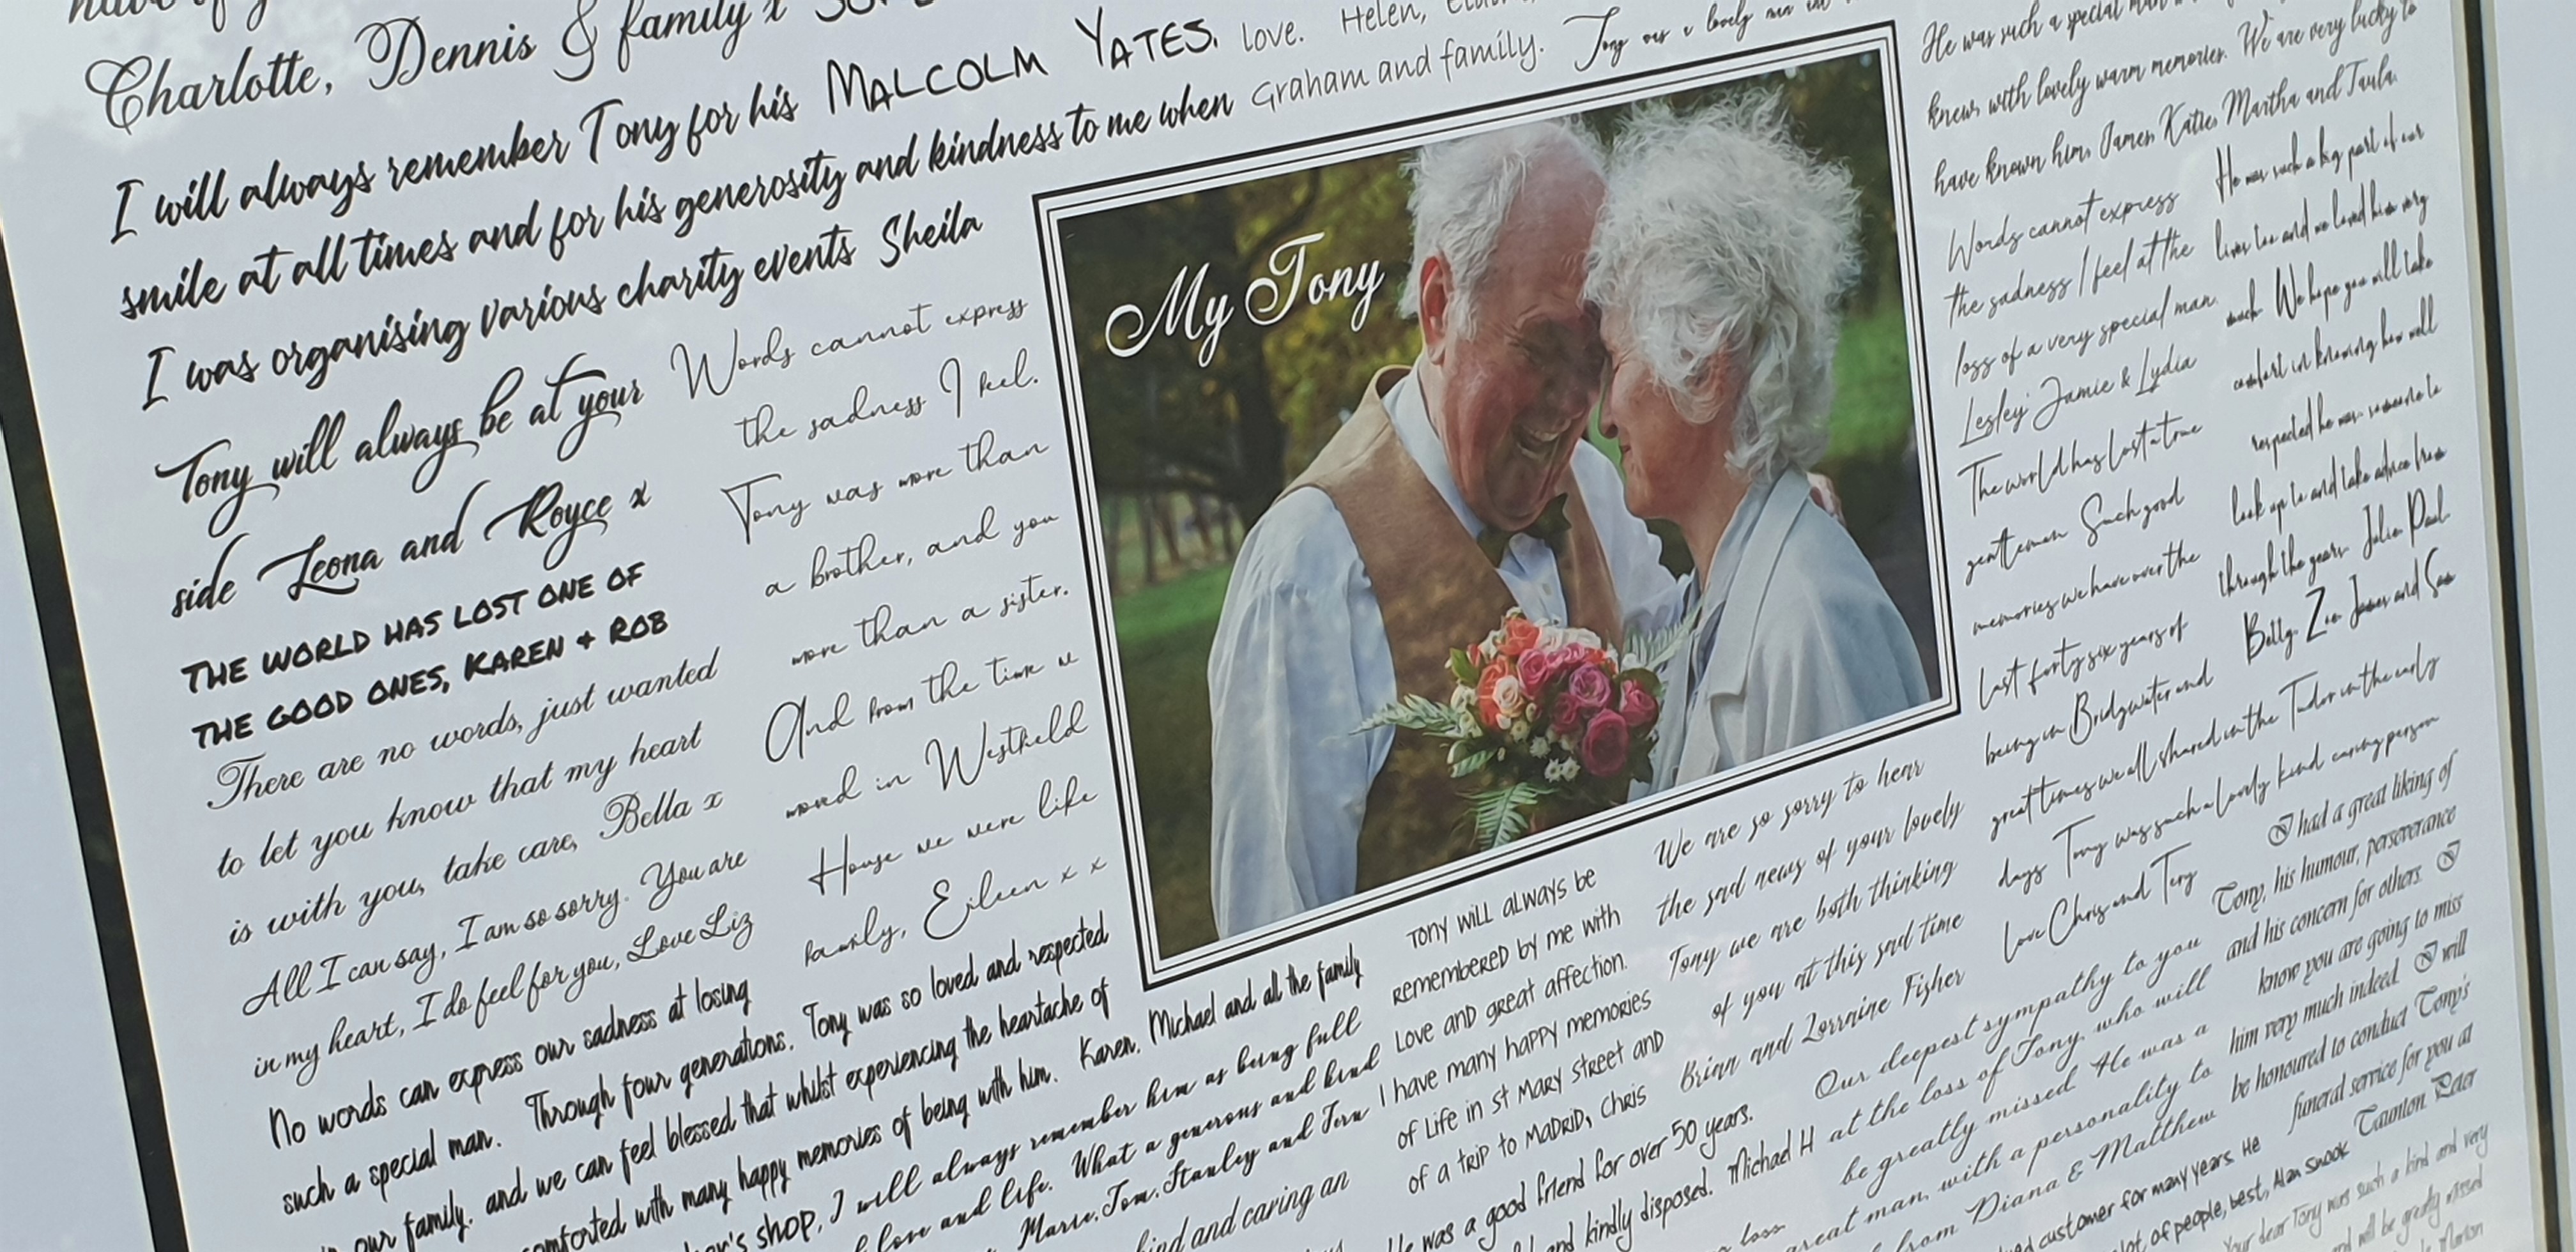 Charlotte, Dennis & family x
I will always remember Tony for his
smile at all times and for his generosity and kindness to me when
I was organising various charity events Sheila
MALCOLM YATES.
love. Helen,
Graham and family.
Tony was a lovely man
Tony will always be at your
side Leona and Royce x
THE WORLD HAS LOST ONE OF
THE GOOD ONES, KAREN & ROB
There are no words, just wanted
to let you know that my heart
is with you, take care, Bella x
All I can say, I am so sorry. You are
in my heart, I do feel for you, Love Liz
Words cannot express
the sadness I feel.
Tony was more than
a brother, and you
more than a sister.
And from the time w
moved in Westfield
House we were like
family, Eileen x x
My Tony
No words can express our sadness at losing
such a special man. Through four generations. Tony was so loved and respected
in our family. and we can feel blessed that whilst experiencing the heartache of
comforted with many happy memories of being with him. Karen, Michael and all the family
shop, I will always remember him as being full
love and life. What a generous and kind
Marie, Tom, Stanley and Fern
kind and caring an
Tony will always be
remembered by me with
love and great affection.
I have many happy memories
of life in St Mary Street and
of a trip to Madrid, Chris
He was a good friend for over 50 years.
and kindly disposed. Michael H
We are so sorry to hear
the sad news of your lovely
Tony we are both thinking
of you at this sad time
Brian and Lorraine Fisher
Our deepest sympathy to you
at the loss of Tony, who will
be greatly missed. He was a
great man, with a personality to
from Diana & Matthew
loss
He was such a special man
knew, with lovely warm memories. We are very lucky to
have known him, James, Katie, Martha and Paula.
Words cannot express
the sadness I feel at the
loss of a very special man.
Lesley, Jamie & Lydia
He was such a big part of our
lives too and we loved him very
much. We hope you will take
comfort in knowing how well
respected he was someone to
look up to and take advice from
through the years. Julie, Paul
Betty, Zoe, James and Sam
The world has lost a true
gentleman Such good
memories we have over the
last forty six years of
being in Bridgwater and
great times we all shared in the Tudor in the early
days Tony was such a lovely kind caring person
love Chris and Tery
I had a great liking of
Tony, his humour, perseverance
and his concern for others. I
know you are going to miss
him very much indeed. I will
be honoured to conduct Tony's
funeral service for you at
Taunton. Peter
customer for many years. He
lot of people, best, Alan Snook
Your dear Tony was such a kind and very
and will be greatly missed
Marion